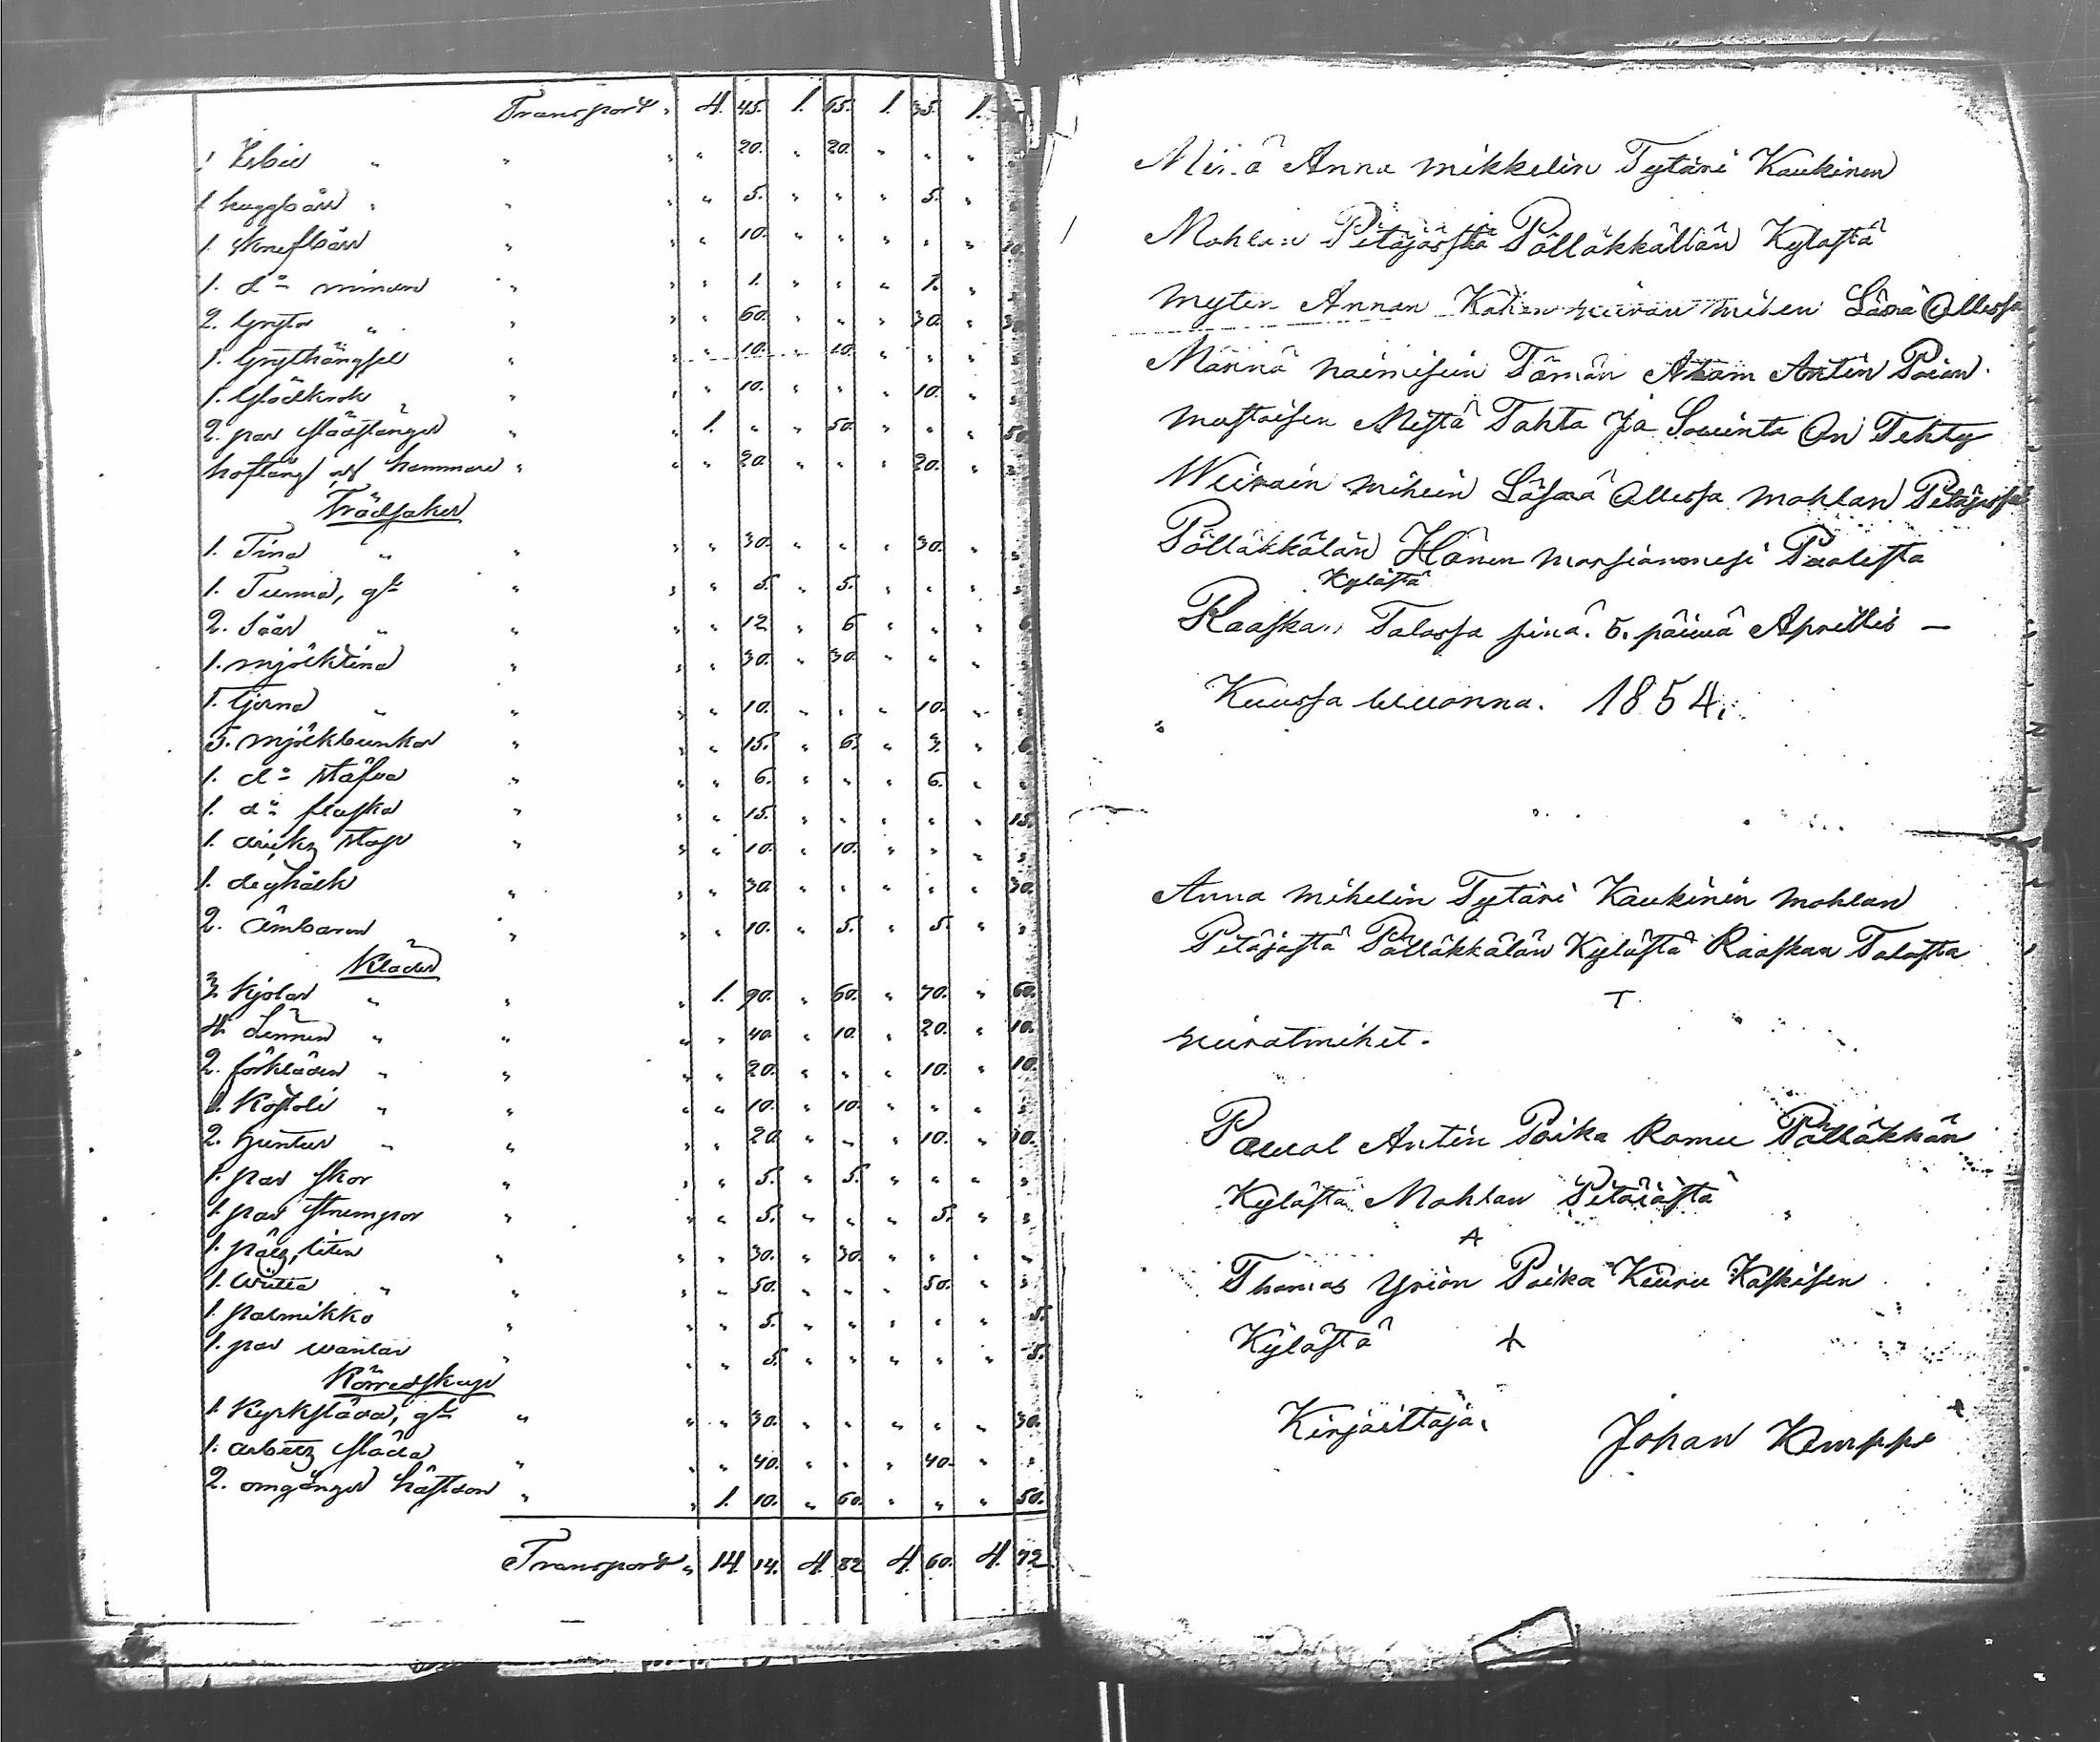 Transport " 4. 45. 1. 65. 1. 35. 1.
1 " " " " 20. " 20. " " "
1 huggbärr " " " " 5. " " " 5. "
1. knefbärr " " " 10. " " " " " 20
1. d:o mindre " " " 1. " " " 1. "
2. Grytor " " " " 60. " " " 30. " 30
1. Grythängsel " " " 10. " 10. " " "
1. Glödkrok " " " 10. " " " 10. "
2. par " " 1. " " 50. " " " 50.
hoftång och hammare " " " 20. " " " 20. "
Trädsaker
1. Tina " " " " 30. " " " 30. "
1. Tunna, g:l " " " 5. " 5. " " "
2. Såar " " " " 12 " 6 " " " 6
1. mjölktina " " " 30. " 30. " " "
1. Tjerna " " " " 10. " " " 10. "
5. mjölkbunkar " " " 15. " 6. " 3. " 6.
1. d:o stäfva " " " 6. " " " 6. "
1. d:o flaska " " " 15. " " " " " 15.
1. dricks stop " " " 10. " 10. " " "
1. deghålk " " " 30. " " " " " 30.
2. Ämbaren " " " 10. " 5. " 5. "
Kläder
3. Kjolar " " " 1. 90. " 60. " 70. " 60.
4. Linnen " " " " 40. " 10. " 20. " 10.
2. förkläden " " " " 20. " " " 10. " 10.
1. Kostoli " " " " 10. " 10. " " "
2. huntur " " " " 20. " " " 10. " 10.
1. par skor " " " 5. " 5. " " "
1. par strumpor " " " 5. " " " 5. "
1. päls, liten " " " 30. " 30. " " "
1. Wiitta " " " " 50. " " " 50. "
1. palmikko " " " 5. " " " " " 5.
1. par wantar " " " 5. " " " " " 5.
Köreredskap
1. Kyrksläda, g:l " " " 30. " " " " " 30.
1. arbets släda " " " 40. " " " 40. "
2. omgångar hästskor " " 1. 10. " 60. " " " 50.
Transport " 14. 14. 4. 82 4. 60. 4. 72
Minä Anna mikkelin Tytäri Kaukinen
Mohlan Pitäjästä Pölläkkällän Kylästä
myten Annan miehen Läsnä Ollessa
Männä naimisiin Tämän Atam Antin Poian
mustoisen Mistä Tahto Ja Souinto On Tehty
Wieirain mihein Läsnä Ollessa mohlan Pitäjässä
Pölläkkälän Hänen morsiammesi Puolesta
Kylästä
Raaskan Talossa sinä. 5. päiwä Aprillis —
Kuussa wuonna. 1854.
Anna mihelin Tytäri Kaukinin mohlan
Pitäjästä Pölläkkälän Kylästä Raaskan Talosta
T
wieratmihet.
Paaual Antin Poika Romu Pölläkkän
Kylästä Mohlan Pitäiästä
A
Thomas Yriön Poika Kuuru Kaskisen
Kylästä +
Kirjoittaja.
Johan Kemppi